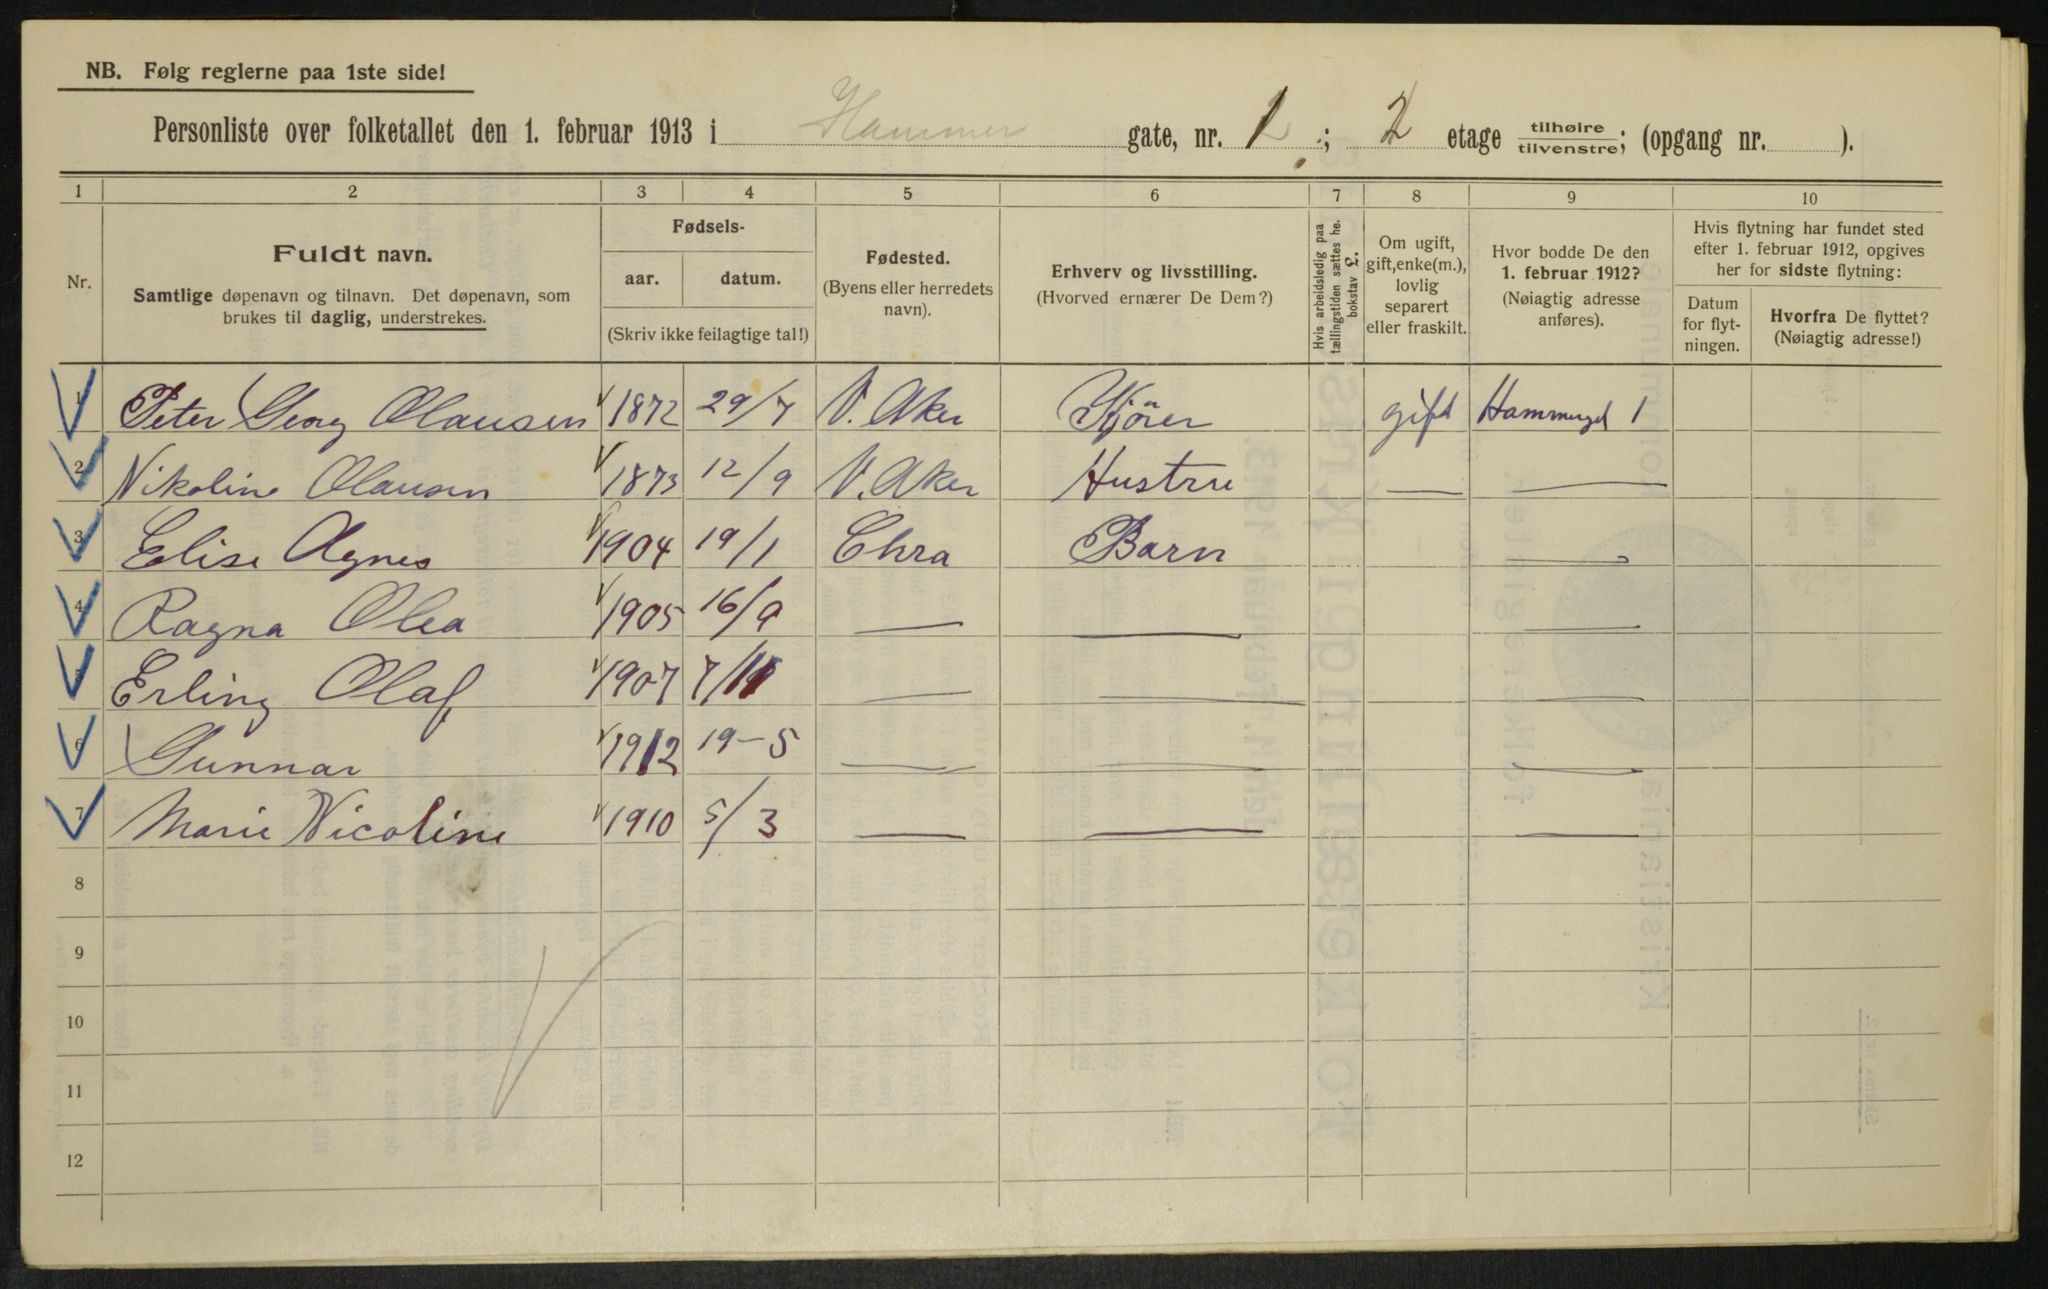 NB. Følg reglerne paa 1ste side!
Personliste over folketallet den 1. februar 1913 i Hammer gate, nr. 1 ; 2 etage tilhøire tilvenstre; (opgang nr. ).
1 2 3 4 5 6 7 8 9 10
Nr.
Fuldt navn.
Samtlige døpenavn og tilnavn. Det døpenavn, som
brukes til daglig, understrekes.
Fødsels-
aar. datum.
(Skriv ikke feilagtige tal!)
Fødested.
(Byens eller herredets
navn).
Erhverv og livsstilling.
(Hvorved ernærer De Dem?)
Hvis arbeidsledig paa
tællingstiden sættes her
bokstav L.
Om ugift,
gift, enke(m.),
lovlig
separert
eller fraskilt.
Hvor bodde De den
1. februar 1912?
(Nøiagtig adresse
anføres).
Hvis flytning har fundet sted
efter 1. februar 1912, opgives
her for sidste flytning:
Datum
for flyt-
ningen.
Hvorfra De flyttet?
(Nøiagtig adresse!)
1 Peter Georg Olausen 1872 29/7 V. Aker Kjörer gift Hammergd 1
2 Nikoline Olausen 1873 12/9 V. Aker Hustru — —
3 Elise Agnes 1904 19/1 Chra Barn —
4 Ragna Olea 1905 16/9 — — —
5 Erling Olaf 1907 7/11 — — —
6 Gunnar 1912 19-5 — — —
7 Marie Nicoline 1910 5/3 — — —
8
9
10
11
12